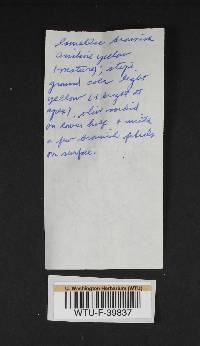 brownish
Aniline yellow
(mature), stipe
ground color light
yellow (+ bright at
apex), olive
on lower half + with
a few brownish fibrils
on surface.
U. Washington Herbarium (WTU)
WTU-F-39837